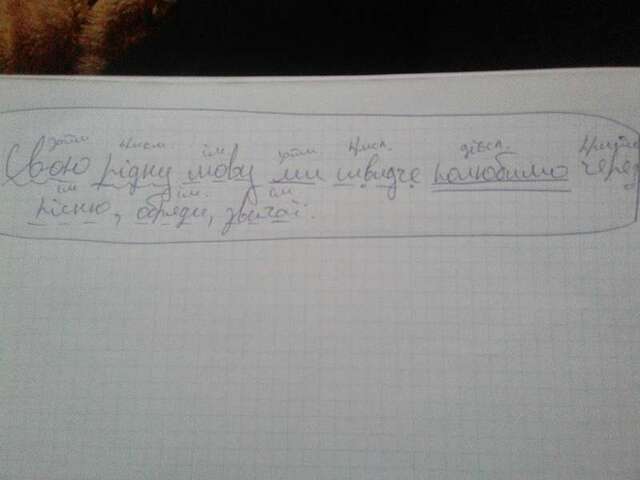 займ ім займ дієсл.
Свою рідну мову ми швидче полюбимо через
ім ім. ім.
пісню, обряди, звичаї.